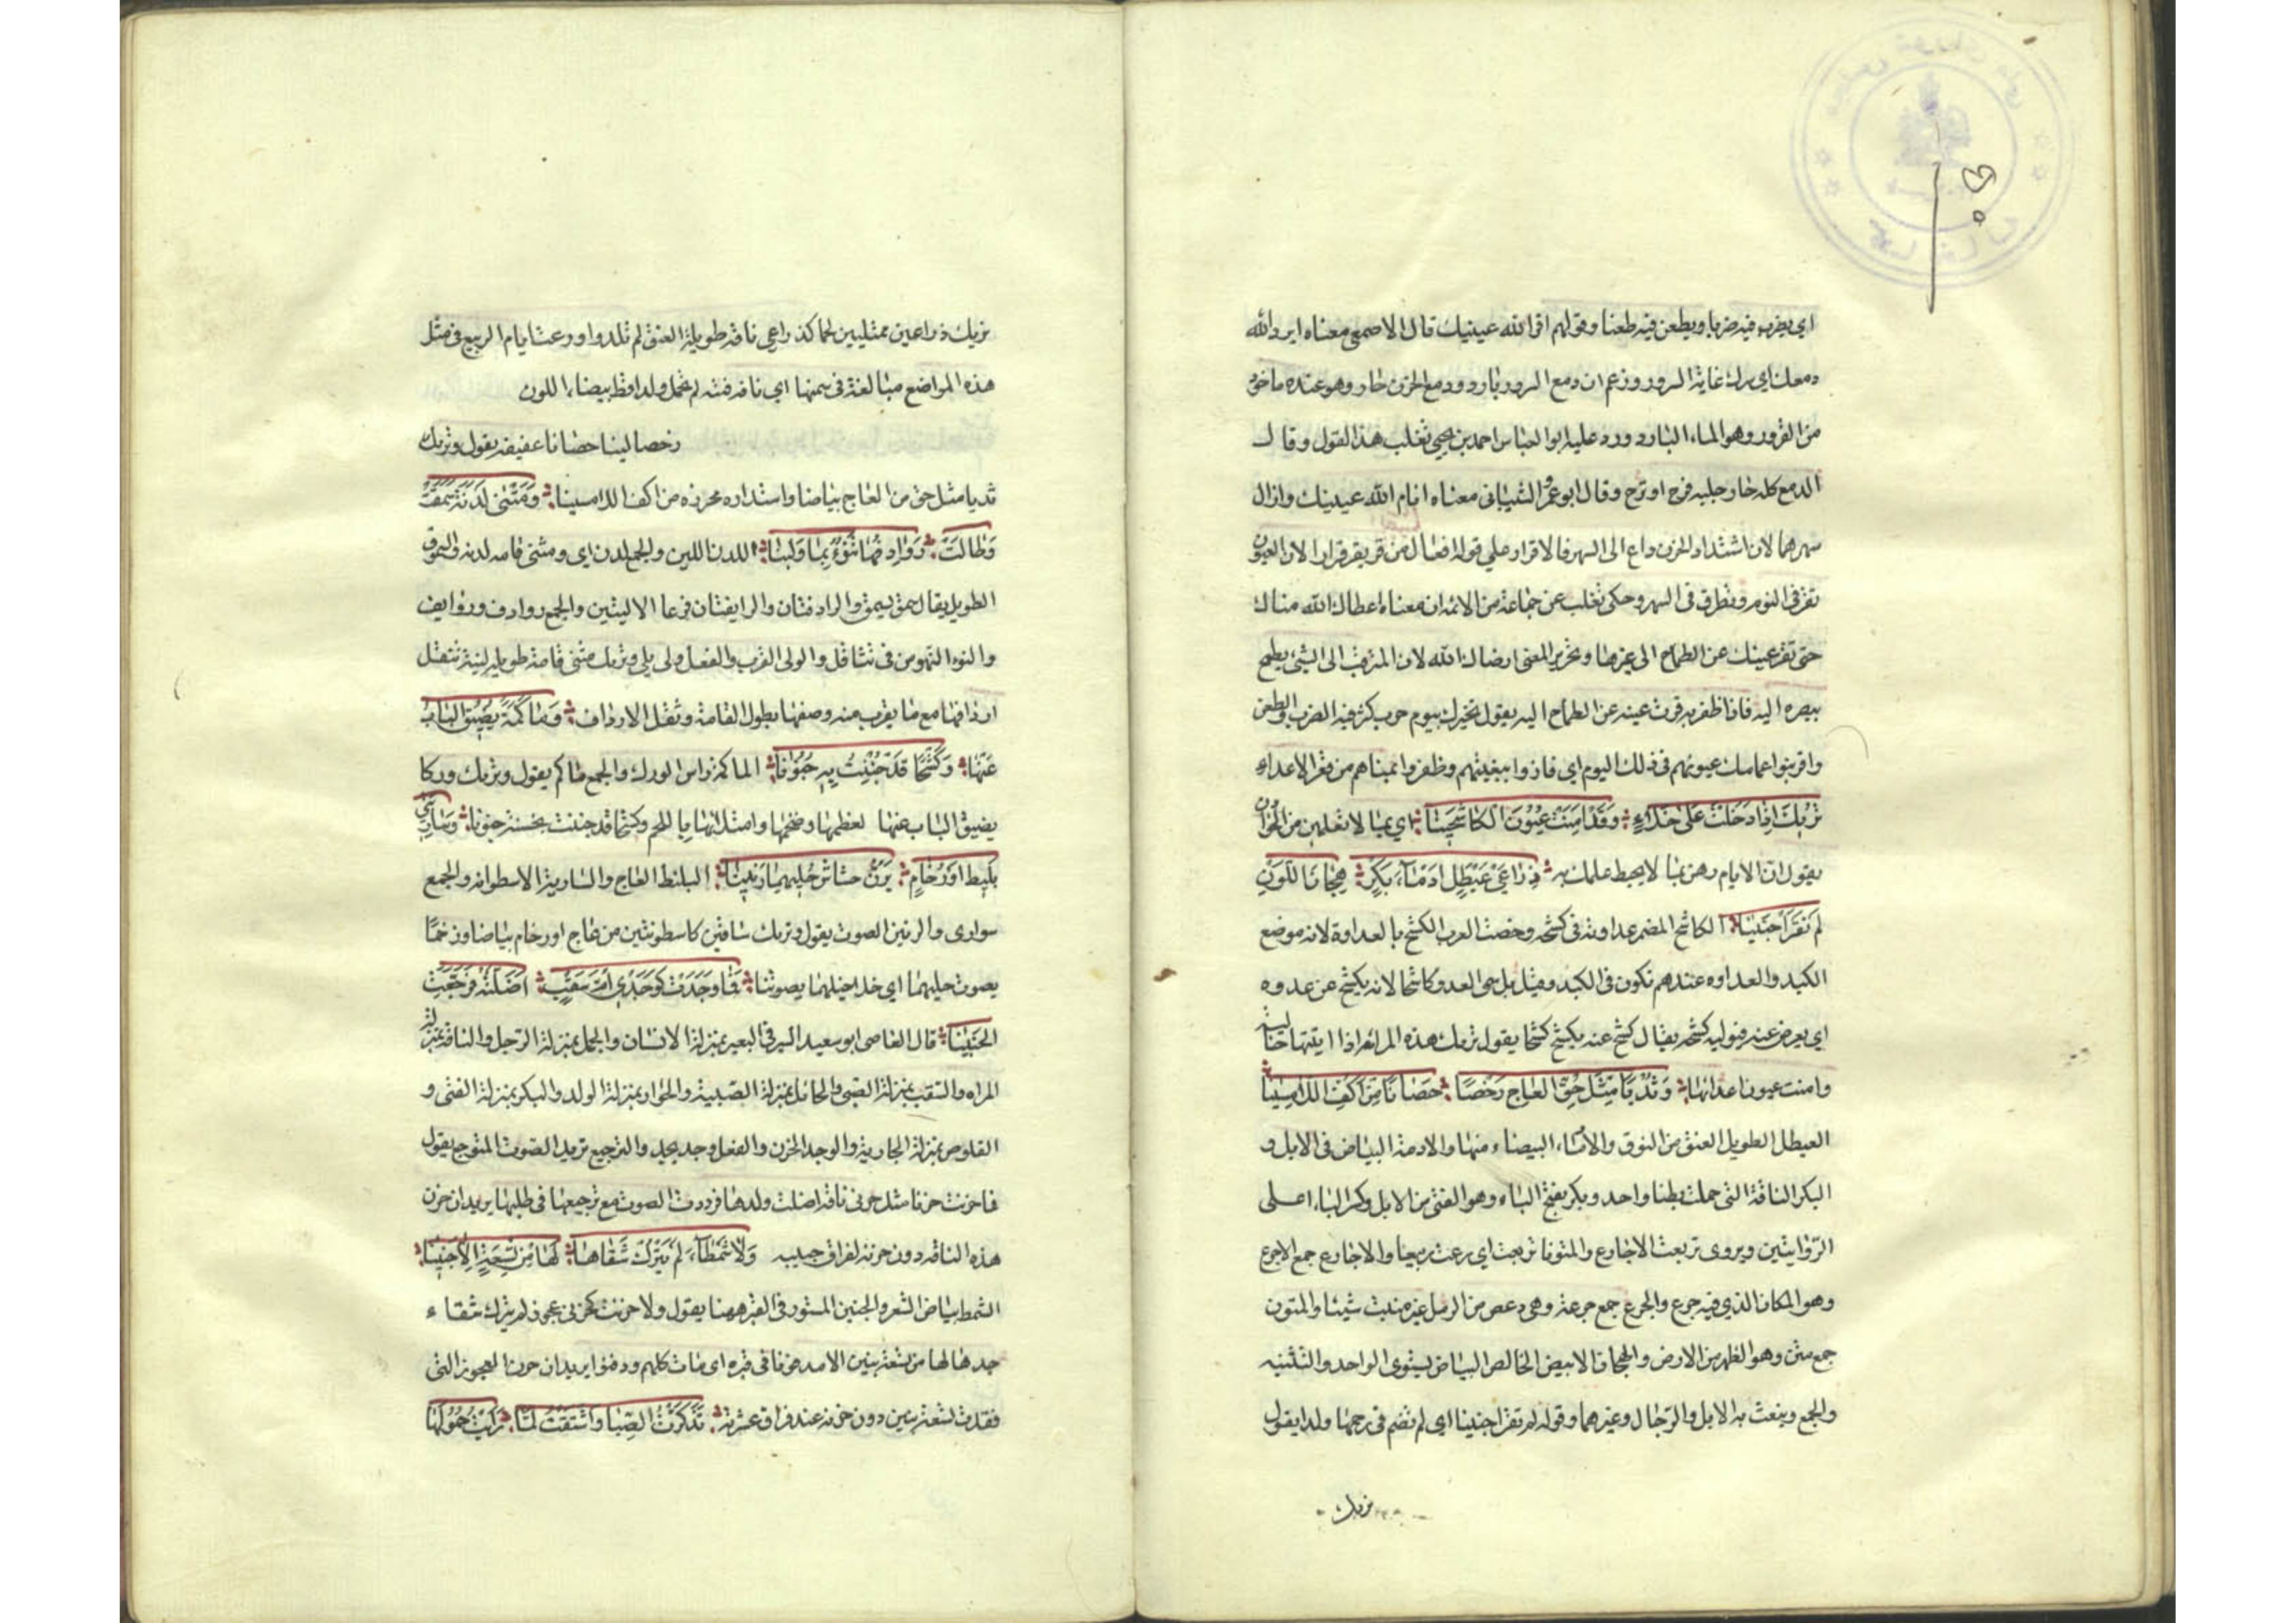 اي يضرب فيه ضربا ويطعن فيه طعنا وقولهم اقر الله عينيك قال الاصمعي معناه ابرد الله
دمعك اي سرك غاية السرور وزعم ان دمع السرور بارد ودمع الحزن حار وهو عنده ماخوذ
من القرور وهو الماء البارد ورد عليه ابو العباس احمد بن يحيى ثعلب هذا القول وقال
الدمع كله حار جلبه فرح او ترح وقال ابو عمرو الشيباني معناه انام الله عينيك وازال
سهرهما لان اشتداد الحزن داع الى السهر فالاقرار على قوله افعال من قر يقر قرارا لان العيون
تقر في النوم وتطرق في السهر وحكى ثعلب عن جماعة من الائمه ان معناه اعطاك الله مناك
حتى تقر عينك عن الطماح الى غيرها وتحرير المعنى ارضاك الله لان المترقب الى الشئ يطمح
ببصره اليه فاذا ظفر به قرت عينه عن الطماح اليه يقول نخبرك بيوم حرب كثر فيه الضرب والطعن
واقر بنوا اعمامك عيونهم في ذلك اليوم اي فازوا ببغيتهم وظفروا بمناهم من قهر الاعداء
تريك اذا دخلت على خلاء وقد امنت عيون الكاشحينا اي بما لا تعلمين من الحوادث
يقول ان الايام رهن بما لا يحيط علمك به ذراعي عيطل ادماء بكر هجان اللون
لم تقرا جنينا الكاشح المضمر عداوته في كشحه وخصت العرب الكشح بالعداوة لانه موضع
الكبد والعداوه عندهم تكون في الكبد وقيل بل سمى العدو كاشحا لانه يكشح عن عدوه
اي يعرض عنه فيوليه كشحه يقال كشح عنه يكشح كشحا يقول تريك هذه المرأة اذا اتيتها خالية
وامنت عيون اعدائها وثديا مثل حق العاج رخصا حصانا من اكف اللامسينا
العيطل الطويل العنق من النوق والادماء البيضاء منها والادمة البياض في الابل و
البكر الناقة التي حملت بطنا واحد وبكر بفتح الباء وهو الفتى من الابل وكسر الباء اعلى
الروايتين ويروى تربعت الاجارع والمتونا تربعت اي رعت ربيعا والاجارع جمع الاجرع
وهو المكان الذي فيه جرع والجرع جمع جرعة وهي دعص من الرمل غير منبت شيئا والمتون
جمع متن وهو الظهر من الارض والهجان الابيض الخالص البياض يستوى الواحد والتثنيه
والجمع وينعت به الابل والرجال وغيرهما وقوله لم تقرا جنينا اي لم تضم في رحمها ولدا يقول
تريك
تريك ذراعين ممتليين لحما كذراعي ناقة طويلة العنق لم تلد او رعت ايام الربيع في مثل
هذه المواضع مبالغة في سمنها اي ناقه فتيه لم تحمل ولدا قط بيضاء اللون
رخصا لينا حصانا عفيفه يقول وتريك
ثديا مثل حق من العاج بياضا واستداره محرزه من اكف اللامسينا ومتنى لدنة سمقت
وطالت روادفها تنوء بما ولينا اللدن اللين والجمع لدن اي ومتنى قامه لدنه والسموق
الطويل يقال سمق يسمق والرادفتان والرانفتان فرعا الاليتين والجمع روادف وروانف
والنوء النهوض في تثاقل والولى القرب والفعل ولى يلي وتريك متنى قامة طويله لينة تثقل
اردافها مع ما يقرب منه وصفها بطول القامة وثقل الارداف وماكمة يضيق الباب
عنها وكشحا قد جننت به جنونا الماكمة راس الورك والجمع ماكم يقول وتريك وركا
يضيق الباب عنها لعظمها وضخمها وامتلائها باللحم وكشحا قد جننت بحسنه جنونا وساريتي
بلنط او رخام يرن خشاش حليهما رنينا البلنط العاج والسارية الاسطوانه والجمع
سوارى والرنين الصوت يقول وتريك ساقين كاسطوانتين من عاج او رخام بياضا وضخما
يصوت حليهما اي خلاخيلهما يصوتنا فما وجدت كوجدي ام سقب اضلته فرجعت
الحنينا قال القاضى ابو سعيد السيرفي البعير بمنزلة الانسان والجمل بمنزلة الرجل والناقة بمنزلة
المراه والسقب بمنزلة الصبى والحائل بمنزلة الصبية والحوار بمنزلة الولد والبكر بمنزلة الفتى و
القلوص بمنزلة الجارية والوجد الحزن والفعل وجد يجد والترجيع ترديد الصوت المتوجع يقول
فما حزنت حزنا مثل حزنى ناقة اضلت ولدها فرددت الصوت مع ترجيعها في طلبها يريد ان حزن
هذه الناقه دون حزنه لفراق حبيبه ولا شمطاء لم يترك شقاها لها من تسعة الا جنينا
الشمط بياض الشعر والجنين المستور في القبر ههنا يقول ولا حزنت كحزنى عجوز لم يترك شقاء
جدها لها من تسعة بنين الا مدفونا في قبره اى مات كلهم ودفنوا يريد ان حزن العجوز التى
فقدت تسعة بنين دون حزنه عند فراق عشيرته تذكرت الصبا واشتقت لما رايت حمولها